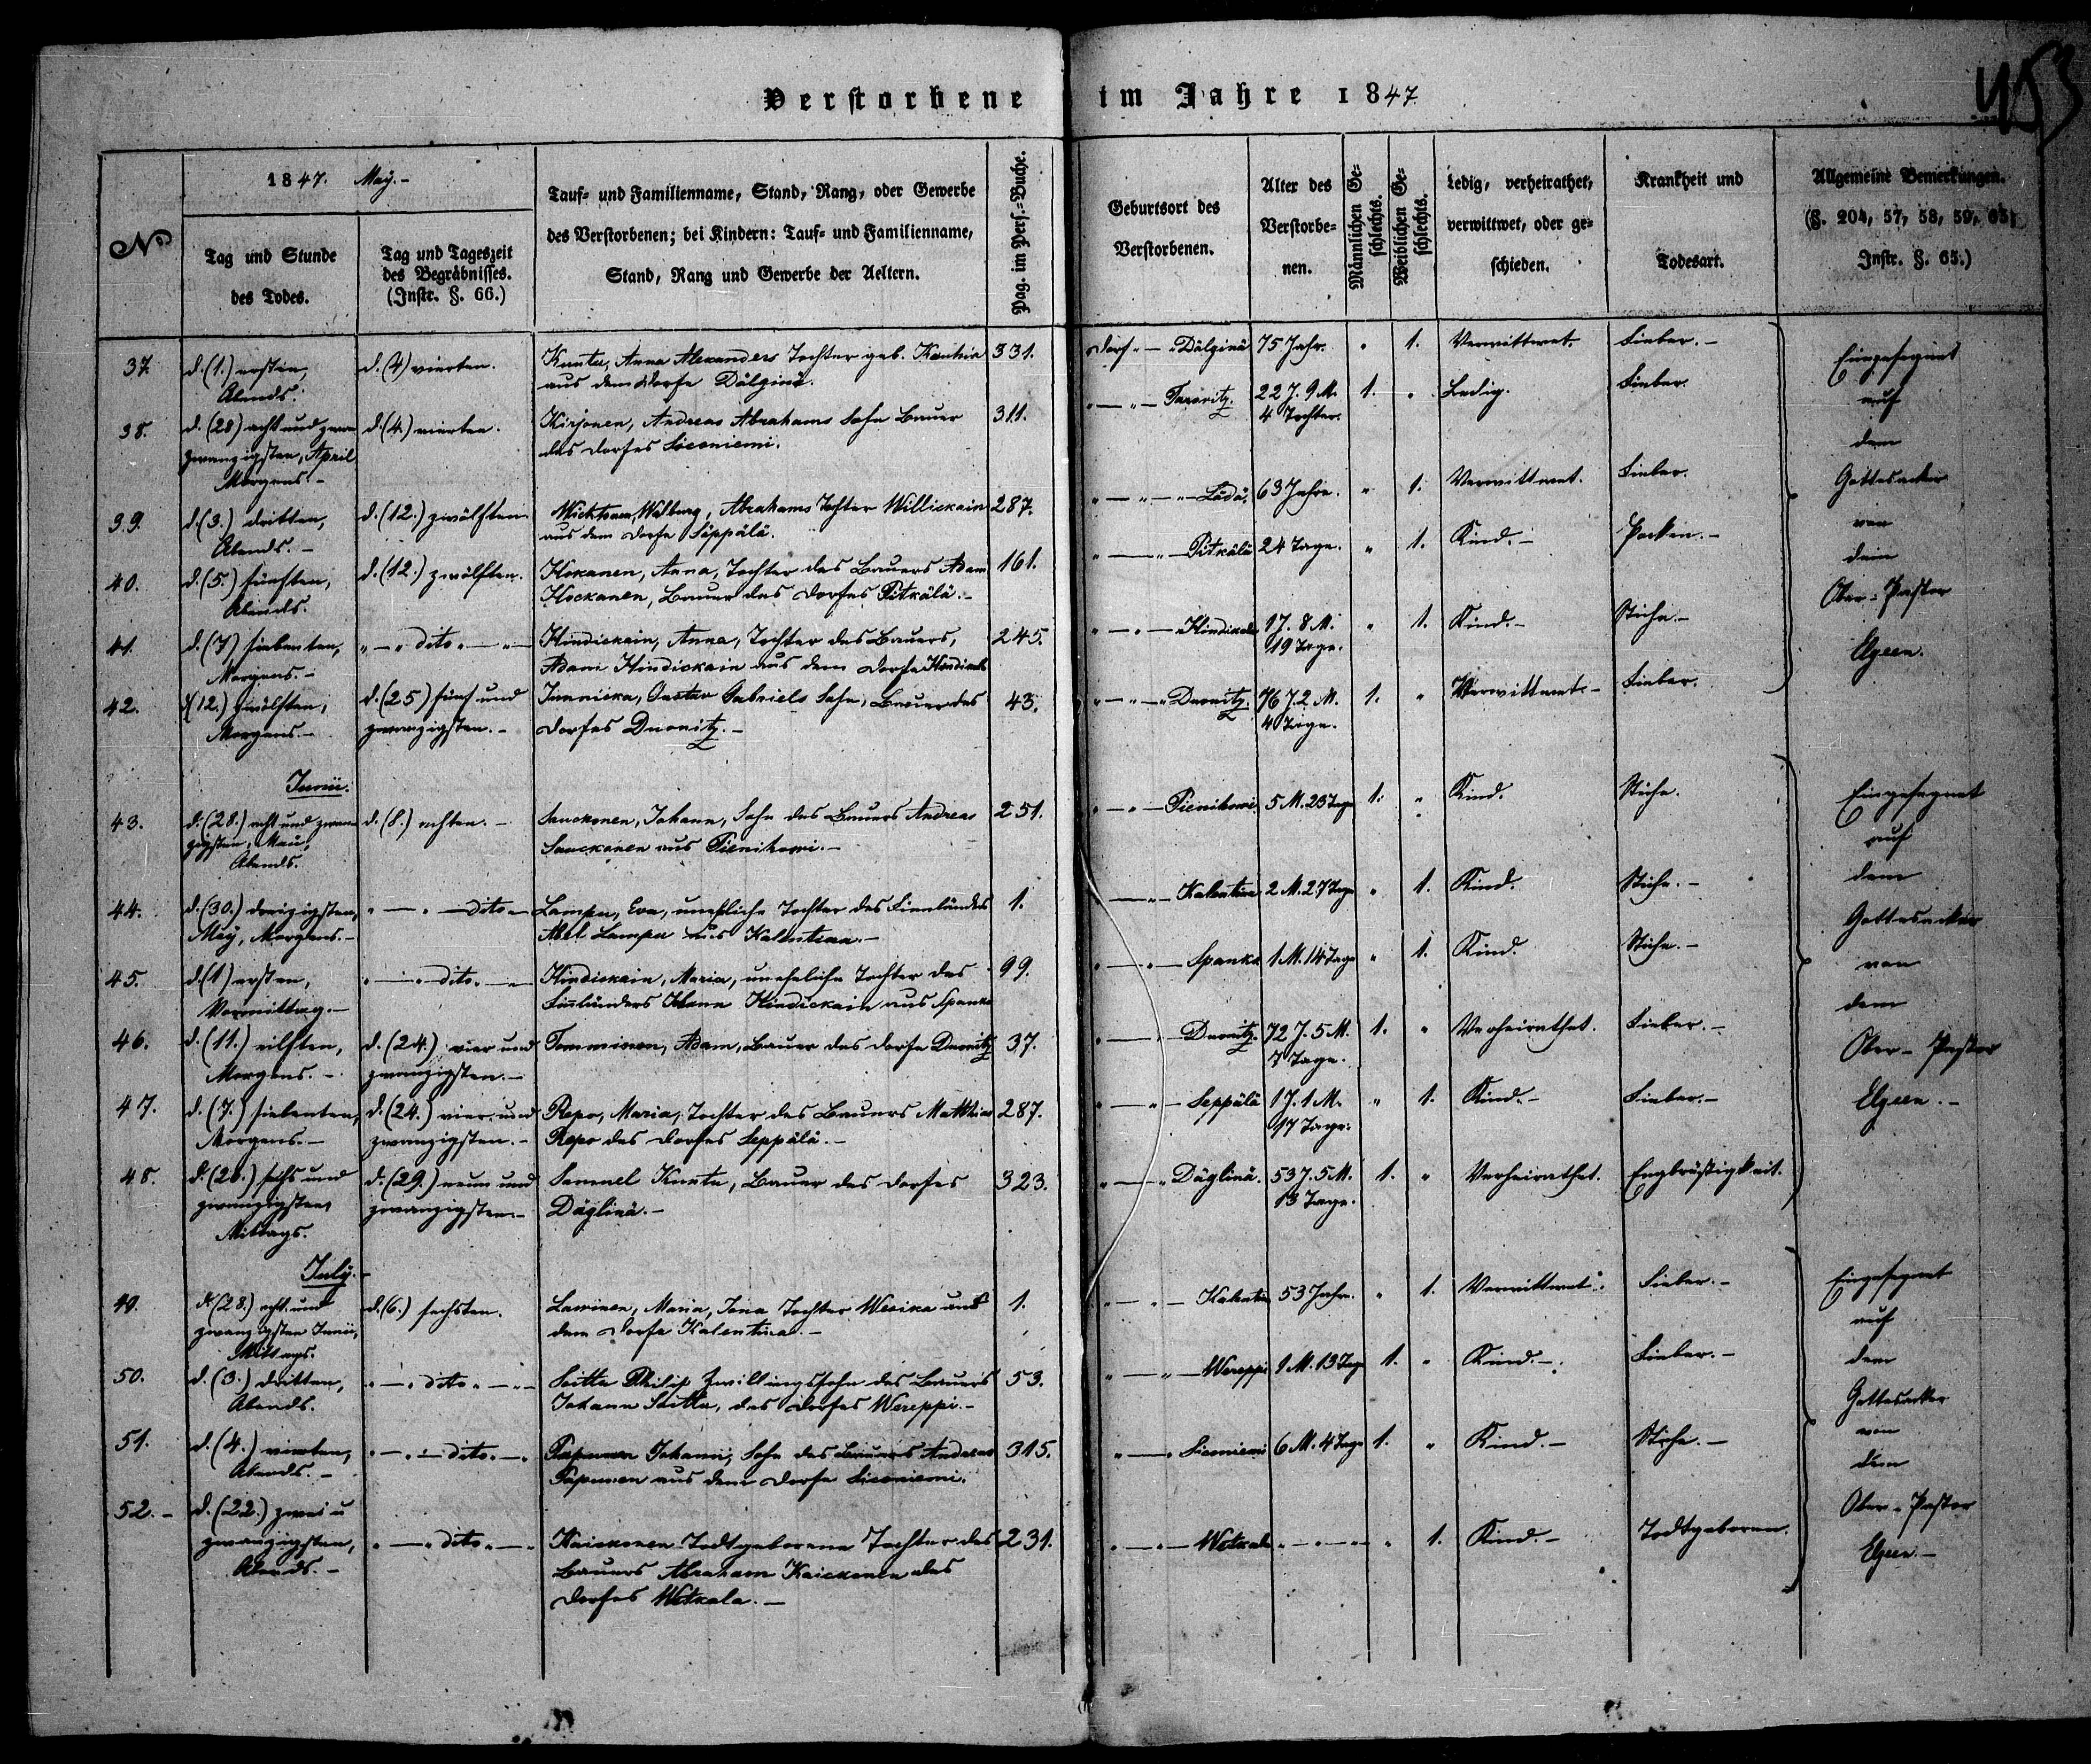 Verstorbene im Jahre 1847.
453
No
1847. May.-
Tag und Stunde
des Todes.
Tag und Tageszeit
des Begräbnisses.
(Instr. §. 66.)
Tauf= und Familienname, Stand, Rang, oder Gewerbe
des Verstorbenen; bei Kindern: Tauf= und Familienname,
Stand, Rang und Gewerbe der Aeltern.
Pag. im Pers.=Buche.
Geburtsort des
Verstorbenen.
Alter des
Verstorbe=
nen.
Männlichen Ge=
schlechts.
Weiblichen Ge=
schlechts.
Ledig, verheirathet,
verwittwet, oder ge=
schieden.
Krankheit und
Todesart.
Allgemeine Bemerkungen.
(§. 204, 57, 58, 59, 65;
Instr. §. 65.)
37.
d. (1.) ersten,
Abends.
d. (4) vierten.
Kuntu, Anna Alexanders Tochter geb.
aus dem Dorfe Dälginä.
331.
Dorf " — " Dälginä
75 Jahr.
" 1.
Verwittwet.
Fieber.-
38.
d. (28) acht und zwan
zwanzigsten, April
Morgens.-
d. (4.) vierten.
Kirjonen, Andreas Abrahams Sohn Bauer
des Dorfes Siconiemi.
311.
22 J. 9 M.
1. "
Ledig.
Fieber.
39.
d. (3.) dritten,
Abends.-
d. (12.) zwölften.
Walburg, Abrahams Tochter Willickain
aus dem Dorfe Säppälä.
287.
" — " — " Lädä.
63 Jahre.
" 1.
Verwittwet.
Fieber.
40.
d. (5.) fünften,
Abends.
d. (12.) zwölften.
Hokanen, Anna, Tochter des Bauers Adam
Hockanen, Bauer des Dorfes Pitkälä.-
161.
" — " — Pitkälä
24 Tage.
" 1.
Kind.-
Pocken.-
41.
d. (7) siebenten,
Morgens.-
" — " dito " — "
Hindickain, Anna, Tochter des Bauers,
Adam Hindickain aus dem Dorfe
245.
1 J. 8 M.
19 Tage.
" 1.
Kind.-
Stiche.-
42.
d (12.) zwölften,
Morgens.-
d. (25) fünf und
zwanzigsten.-
Gustav Gabriels Sohn, Bauer des
Dorfes Duonitz.-
43.
" — " — " Duonitz.
76 J. 2 M.
4 Tage.
1. "
Verwittwet.-
Fieber.
Eingesegnet
auf
dem
Gottesacker
von
dem
Ober-Pastor
Elgeen.
Junii.
43.
d. (28.) acht und zwan
zigsten, Mai,
Abends.
d. (8.) achten.-
Sauckonen, Johann, Sohn des Bauers Andreas
Sauckonen aus Pienikowi.-
251.
" — " — Pienikowi
5 M. 23 Tage
1. "
Kind.
Stiche.
44.
d. (30.) dreizigsten,
May, Morgens.-
" — " — dito "
Lampu, Eva, uneheliche Tochter des Finnländers
Abel Lampu aus Kalentina.-
1.
" — " Kalentina
2 M. 27 Tage
" 1.
Kind.
Stiche.-
45.
d (1) ersten,
Vormittag.-
" — " dito. — "
Hindickain, Maria, uneheliche Tochter des
Finnländers Johann Hindickain aus Spanka
99.
" — " — Spanka
1 M. 14 Tage
" 1.
Kind.
Stiche.-
46.
d. (11.) eilften,
Morgens.-
d. (24.) vier und
zwanzigsten.-
Tomminen, Adam, Bauer des Dorfe Duonitz
37.
" — " Duonitz.
72 J. 5 M.
7 Tage.
1. "
Verheirathet.
Fieber.-
47.
d. (7.) siebenten,
Morgens.-
d. (24.) vier und
zwanzigsten.-
Repo, Maria, Tochter des Bauers Matthias
Repo des Dorfes Seppälä.-
287.
" — " — Seppälä
1 J. 1 M.
17 Tage.
" 1.
Kind.-
Fieber.-
48.
d. (26.) sechs und
zwanzigsten,
Mittags.
d. (29.) neun und
zwanzigsten.-
Samuel Kuntu, Bauer des Dorfes
Däglinä.-
323.
" — " Däglinä.
53 J. 5 M.
13 Tage.
1. "
Verheirathet.
Engbrüstigkeit.
Eingesegnet
auf
dem
Gottesacker
von
dem
Ober-Pastor
Elgeen.-
July.-
49.
d. (28.) acht und
zwanzigsten Junii,
Mittags.
d. (6.) sechsten.
Maria, Tochter aus
dem Dorfe Kalentina.-
1.
" — " — Kalentina
53 Jahre.
" 1.
Verwittwet.
Fieber.-
50.
d. (3.) dritten,
Abends.
" — " dito " — "
Philip Zwillingssohn des Bauers
Johann des Dorfes Wereppi.-
53.
" — " — Wereppi
M. 13 Tage
1. "
Kind.-
Fieber.-
51.
d. (4.) vierten,
Abends.-
" — " — dito. — "
Papunen Johann, Sohn des Bauers Andreas
Papunen aus dem Dorfe Siconiemi.
315.
" — " Siconiemi
6 M. 4 Tage
1. "
Kind.-
Stiche.-
52.-
d. (22.) zwei u
zwanzigsten,
Abends.-
" — " dito " — "
Kaickonen Todtgeborene Tochter des
Bauers Abraham Kaickonen des
Dorfes Wetkala.-
231.
" — " — Wetkala
" 1.
Kind.-
Todtgeboren.
Eingesegnet
auf
dem
Gottesacker
von
dem
Ober-Pastor
Elgeen-